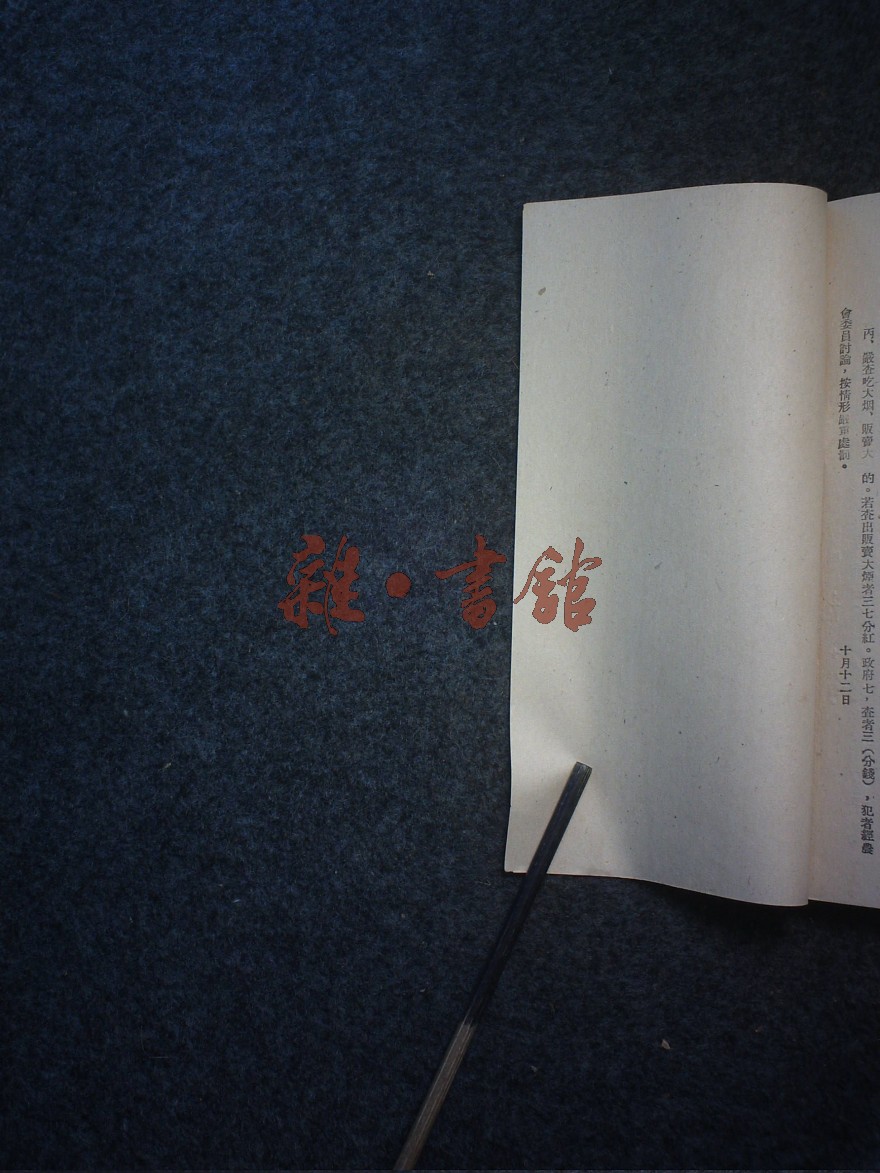 丙、嚴查吃大烟、販賣大 的。若查出販賣大煙者三七分紅。政府七，查者三（分錢），犯者經農
會委員討論，按情形嚴重處罰。
十月十二日
雜·書館